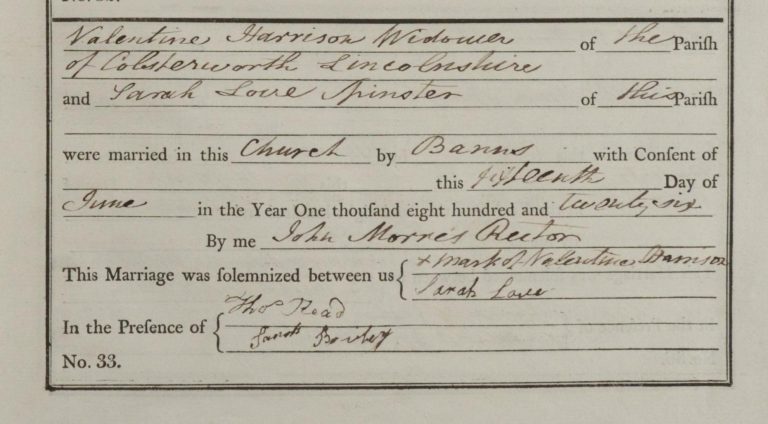 Valentine Harrison Widower of the Pariſh
of Colsterworth Lincolnshire
and Sarah Love Spinster of this Pariſh
were married in this Church by Banns with Conſent of
this fifteenth Day of
June in the Year One thouſand eight hundred and twenty six
By me John Morris Rector
This Marriage was ſolemnized between us { x mark of Valentine Harrison
Sarah Love
In the Preſence of { Thos Read
Sarah
No. 33.